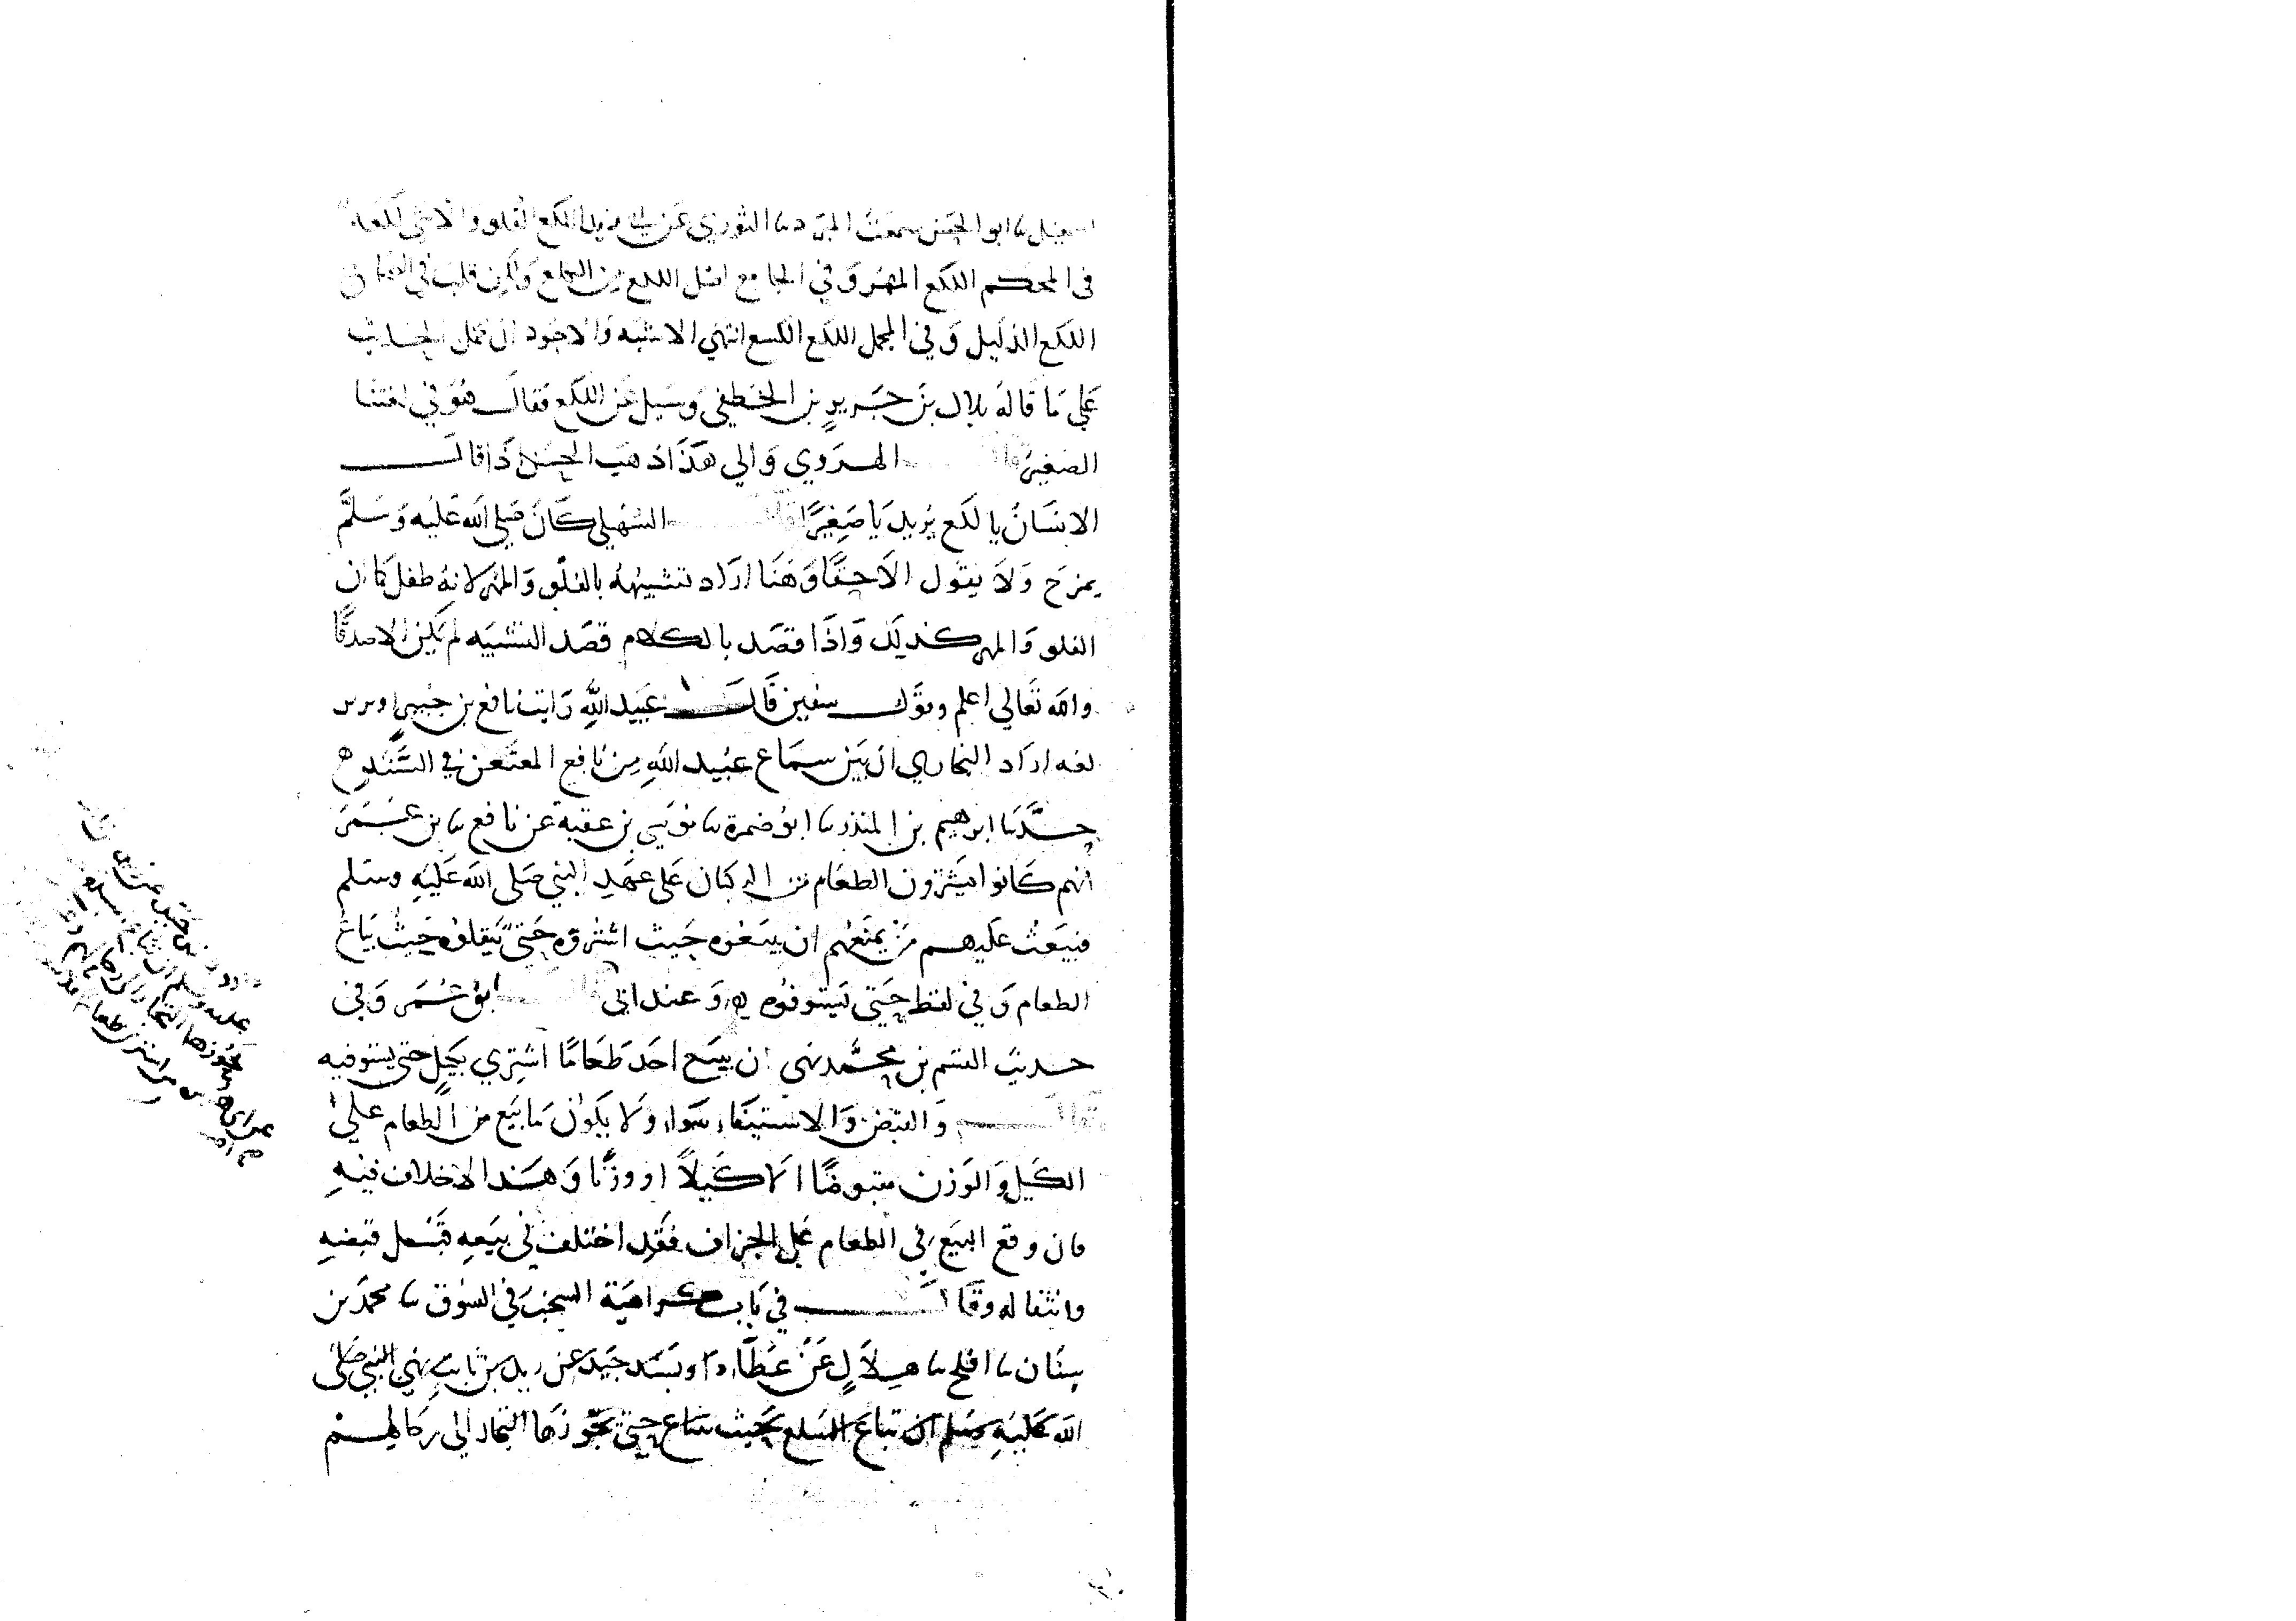 اسمعيل ثنا ابو الحسن سمعت المبرد ثنا الثوري عن ابي زيد اللكع الفلو والانثى لكعة
في المحكم اللكع المهر وفي الجامع اصل اللكع من الكلع ولكن قلب في
اللكع الذليل وفي المجمل اللكع اللسع انتهى الاشبه والاجود ان يحمل الحديث
على ما قاله بلال بن جرير بن الخطفي وسيل عن اللكع فقال هو في لغتنا
الصغير قال الهروي والى هذا ذهب الحسن اذا قال
الانسان يا لكع يريد يا صغيرا قال السهيلي كان صلى الله عليه وسلم
يمزح ولا يقول الا حقا وهنا اراد تشبيهه بالفلو والمهر لانه طفل كما ان
الفلو والمهر كذلك واذا قصد بالكلام قصد التشبيه لم يكن الا صدقا
والله تعالى اعلم وقول سفين قال عبيد الله رايت نافع بن جبير اوتر بر
لعه اراد البخاري ان يبين سماع عبيد الله من نافع المعنعن في السند ه
حدثنا ابرهيم بن المنذر ثنا ابو ضمرة ثنا موسى بن عقبة عن نافع ثنا بن عمر
انهم كانوا يشترون الطعام من الركبان على عهد النبي صلى الله عليه وسلم
فيبعث عليهم من يمنعهم ان يبيعوه حيث اشتروه حتى ينقلوه حيث يباع
الطعام وفي لفظ حتى يستوفوه ه وعند ابي ابو عمر وفي
حديث القسم بن محمد نهى ان يبيع احد طعاما اشتري بكيل حتى يستوفيه
قال والقبض والاستيفا سوا ولا يكون ما بيع من الطعام على
الكيل والوزن مقبوضا الا كيلا او وزنا وهذا لا خلاف فيه
فان وقع البيع في الطعام على الجزاف فقد اختلف في بيعه قبل قبضه
وانتقاله وقال في باب كراهية السخب في السوق ثنا محمد بن
سنان ثنا افلح ثنا هلال عن عطا د وبسند جيد عن زيد بن ثابت نهى النبي صلى
الله عليه وسلم ان تباع السلع بحيث تبتاع حتى يحوزها التجار الى رحالهم
عليه وسلم ان تباع السلع
يحوزها التجار الى رحالهم
من اشترى طعاما